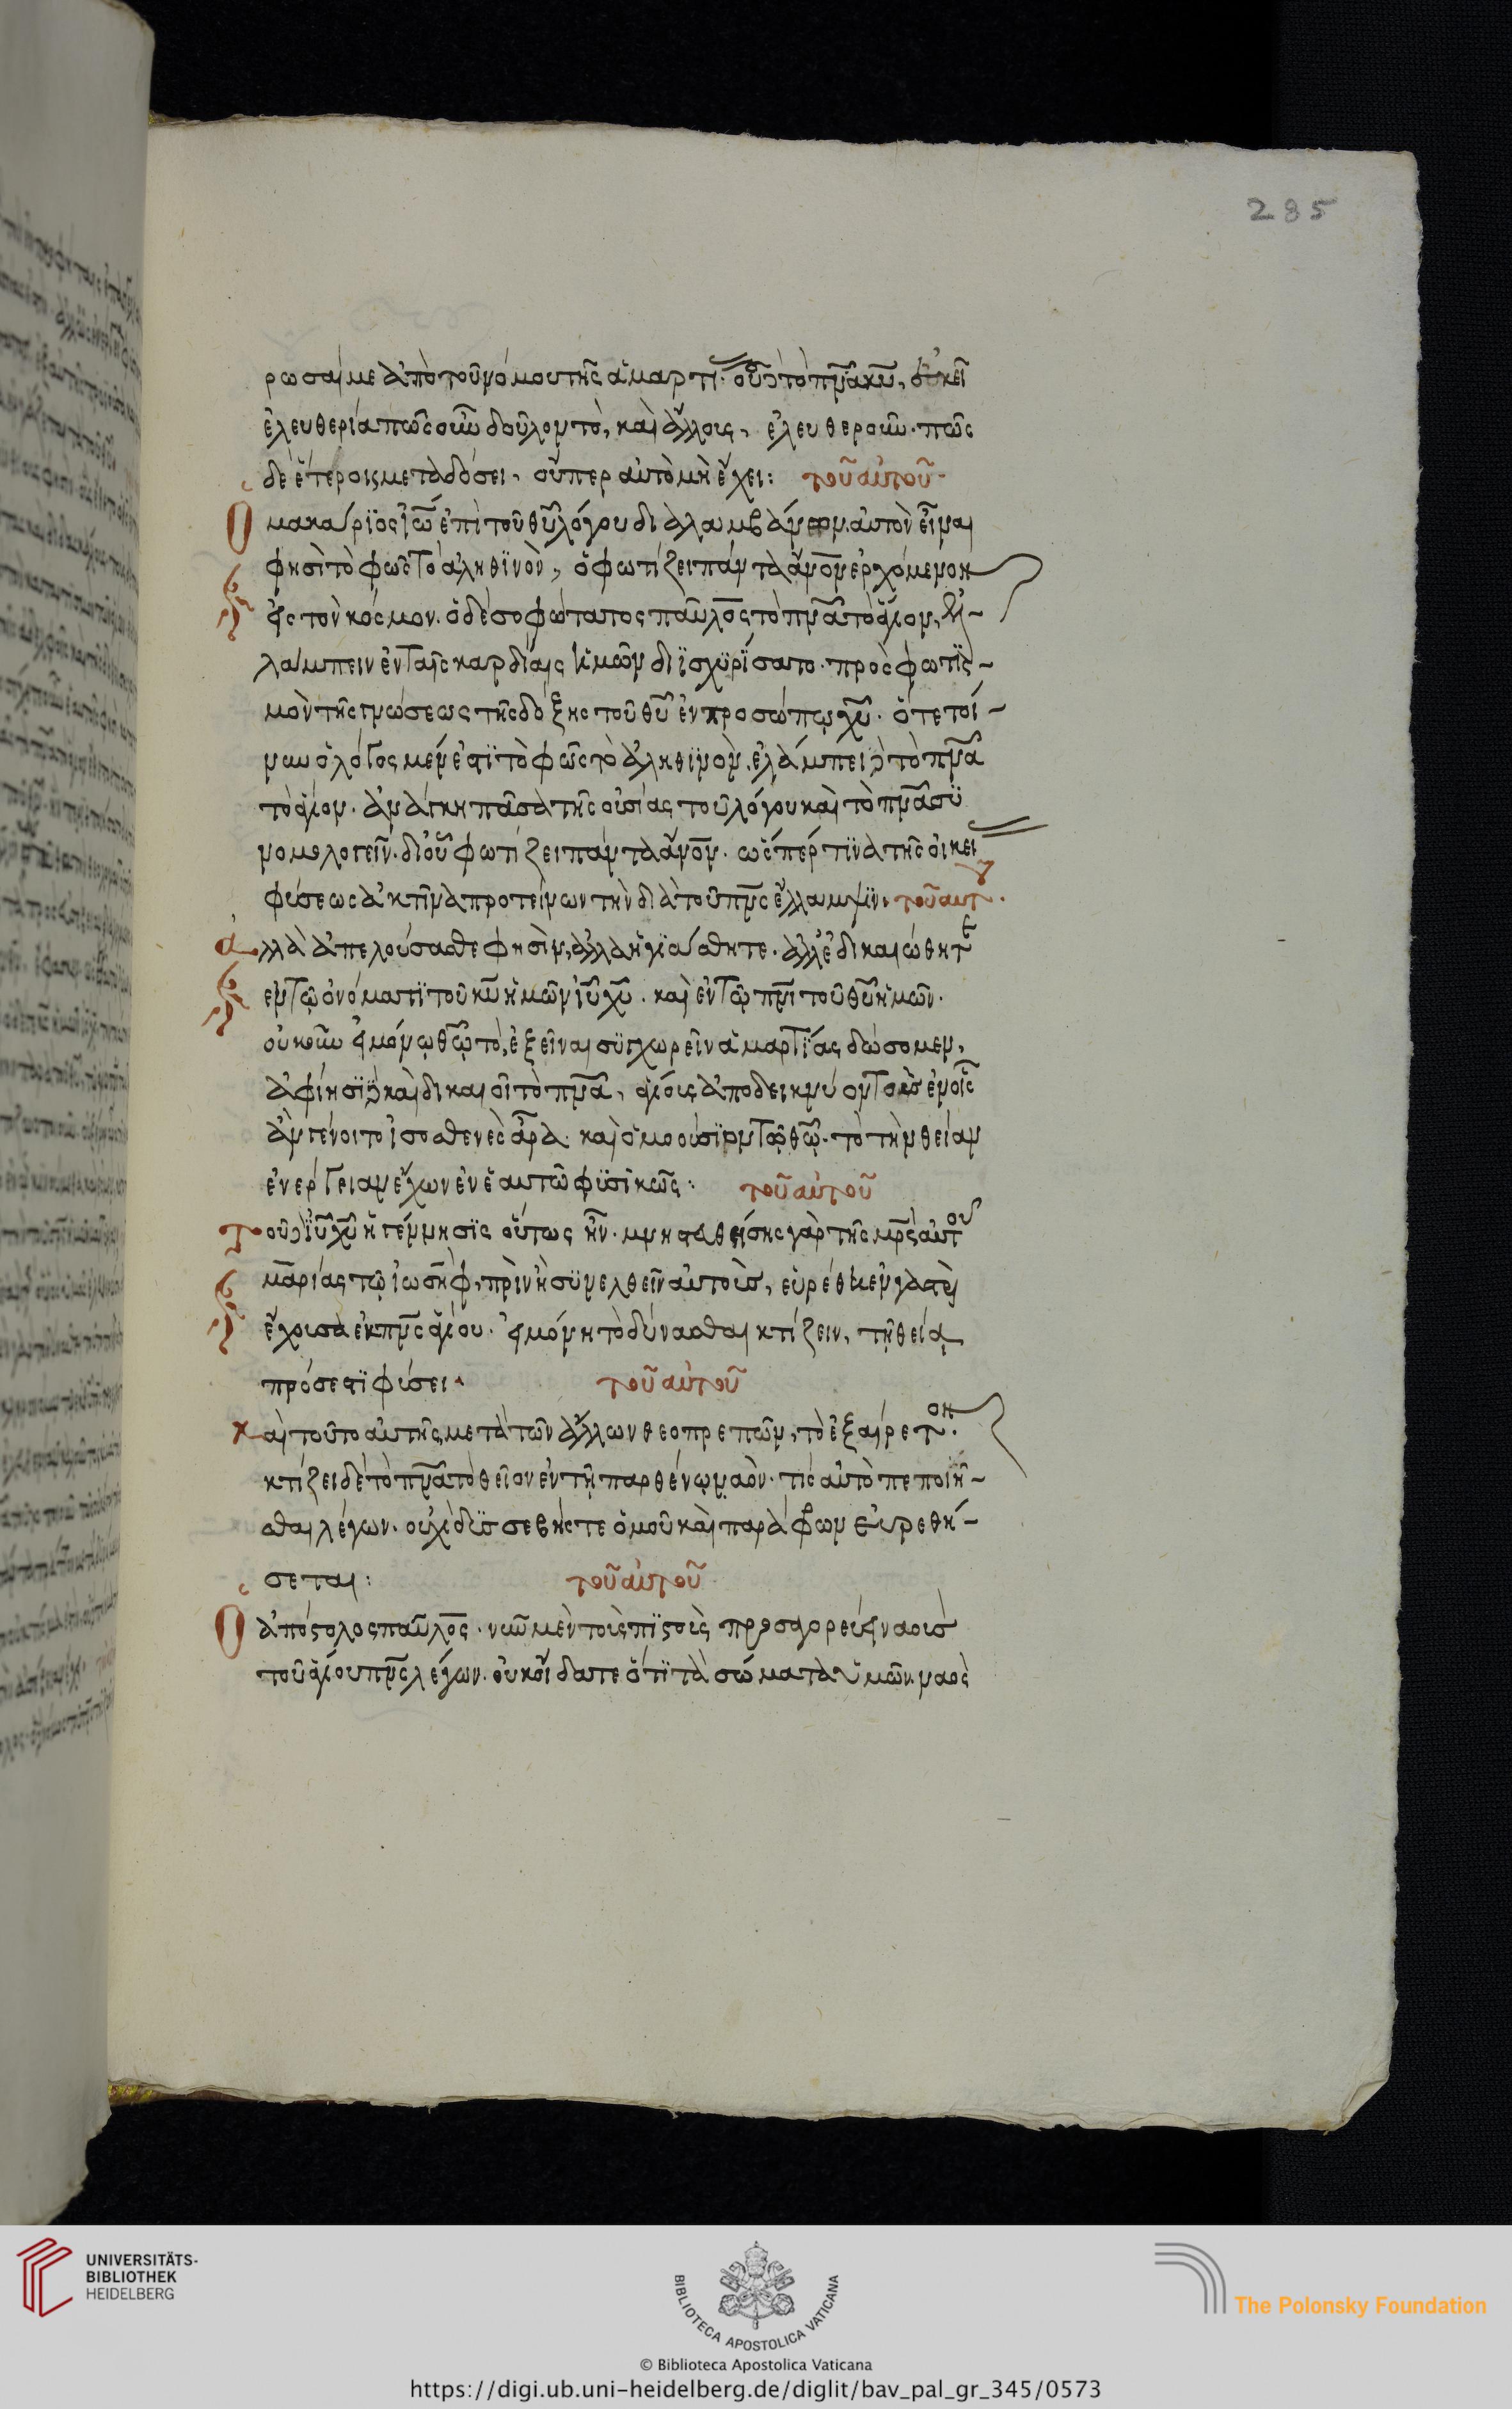 285
ρωσαί με ἀπὸ τοῦ νόμου τῆς ἁμαρτί. οὗ δὲ τὸ πνᾶ κυ, ἐκεῖ
ἐλευθερία πῶς οὖν δοῦλον τὸ, καὶ ἄλλοις, ἐλευθεροῦν. πῶς
δὲ ἑτέροις μεταδόσει, οὗπερ αὐτὸ μὴ ἔχει: τοῦ αὐτοῦ
Ὁ μακάριος ἰω ἐπὶ τοῦ θυ λόγου διαλαμβάνων. αὐτὸν εἶναι
φησὶ τὸ φῶς τὸ ἀληθϊνὸν, ὃ φωτίζει πάντα ἄνον ἐρχόμενον
εἰς τὸν κόσμον. ὁ δὲ σοφώτατος παῦλος τὸ πνᾶ τὸ ἅγιον,
λάμπειν ἐν ταῖς καρδίαις ἡμῶν διϊσχϋρίσατο. πρὸς φωτϊσ-
μὸν τῆς γνώσεως τῆς δόξης τοῦ θυ ἐν προσώπῳ χυ. ὅτε τοί-
νυν ὁ λόγος μέν ἐστϊ τὸ φῶς τὸ ἀληθϊνὸν, ἐλάμπει δὲ τὸ πνᾶ
τὸ ἅγιον. ἀνάγκη πᾶσα τῆς οὐσίας τοῦ λόγου καὶ τὸ πνᾶ σϋ
νομολογεῖν. δι' οὗ φωτίζει πάντα ἄνον. ὡσπέρ τϊνα τῆς οἰκεί
φύσεως ἀκτῖνα προτείνων τὴν διὰ τοῦ πνς ἔλλαμψϊν. τοῦ αυτ.
Ἀλλὰ ἀπελούσασθε φησὶν, ἀλλὰ ἡγιάσθητε. ἀλλ' ἐδικαιώθητε
ἐν τῷ ὀνόματϊ τοῦ κυ ἡμῶν ἰυ χυ. καὶ ἐν τῷ πνι τοῦ θυ ἡμῶν.
οὐκοῦν εἰ μόνῳ θῷ τὸ, ἐξεῖναι σϋγχωρεῖν ἁμαρτϊας δώσομεν,
ἀφίησϊ δὲ καὶ δικαιοῖ τὸ πνᾶ, ἁγίους ἀποδεικνύον τοὺς ἐν οἷς
ἂν γένοιτο ἰσοσθενὲς ἄρα. καὶ ὁμοούσϊον τῷ θῷ. τὸ τὴν θείαν
ἐνέργειαν ἔχων ἐν ἑαυτῶ φϋσϊκῶς: τοῦ αὐτοῦ
Τοῦ δὲ ἰυ χυ ἡ γέννησϊς οὕτως ἦν. μνηστευθείσης γὰρ τῆς μρς αὐτοῦ
μαρίας τῷ ἰωσὴφ, πρὶν ἢ σϋνελθεῖν αὐτοὺς, εὑρέθη ἐν γαστρὶ
ἔχουσα ἐκ πνς ἁγίου. εἰ μόνη τὸ δύνασθαι κτίζειν, τῆ θεία
πρόσεστϊ φύσει. τοῦ αὐτοῦ
καὶ τοῦτο αὐτῆς μετὰ τῶν ἄλλων θεοπρεπῶν, τὸ ἐξαίρετον.
κτίζει δὲ τὸ πνᾶ τὸ θεῖον ἐν τῆ παρθένῳ ναὸν. τίς αὐτὸ πεποιῆ-
σθαι λέγων. οὐχὶ δϋσσεβής τε ὁμοῦ καὶ παράφρων εὑρεθή-
σεται: τοῦ αὐτοῦ
Ὁ ἀπόστολος παῦλος. νῦν μὲν τοὺς πϊστοὺς προσαγορεύει ναοὺς
τοῦ ἁγίου πνς λέγων. οὐκ οἴδατε ὅτϊ τὰ σώματα ὑμῶν, ναὸς
UNIVERSITÄTS-
BIBLIOTHEK
HEIDELBERG
BIBLIOTECA APOSTOLICA VATICANA
The Polonsky Foundation
© Biblioteca Apostolica Vaticana
https://digi.ub.uni-heidelberg.de/diglit/bav_pal_gr_345/0573